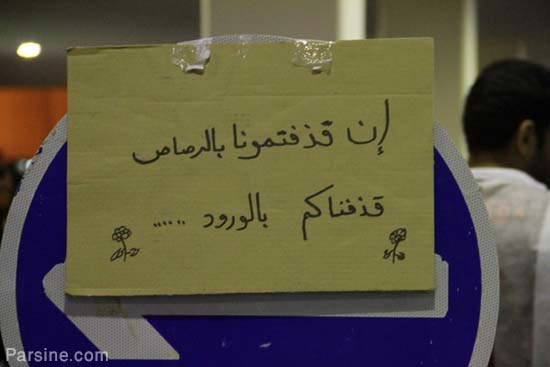 إن قذفتمونا بالرصاص
قذفناكم بالورود ......
Parsine.com